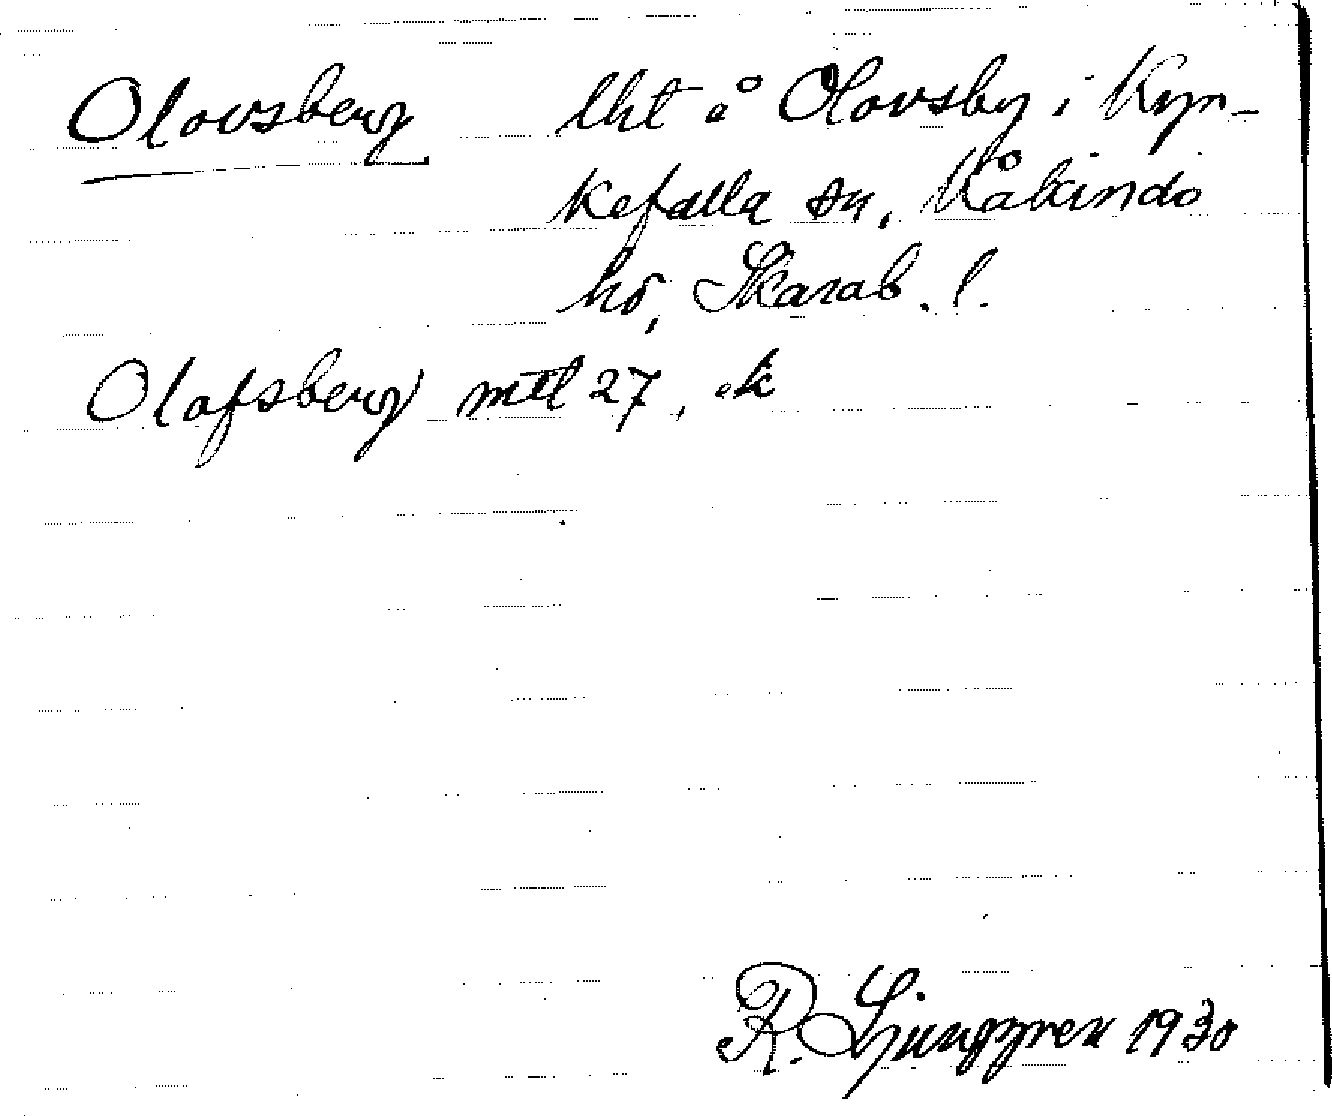 Olovsberg lht å Olovsby i Kyr-
kefalla sn, Kåkindo
hd, Skarab. l.
Olofsberg mtl 27, ek
R. Ljunggren 1930